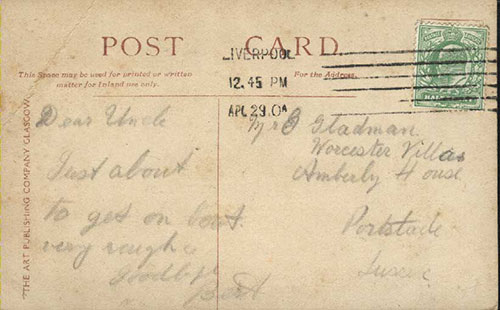 POST CARD.
This Space may be used for printed or written
matter for Inland use only.
For the Address.
LIVERPOOL
12.45 PM
APL 29.0
THE ART PUBLISHING COMPANY, GLASGOW.
Dear Uncle
Just about
to get on boat.
very rough
Goodbye
Bert
Stadman
Worcester Villas
Amberly House
Portslade
Sussex